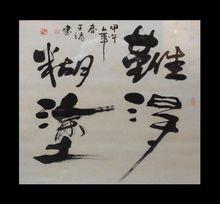 難得
糊塗
甲午
春
書